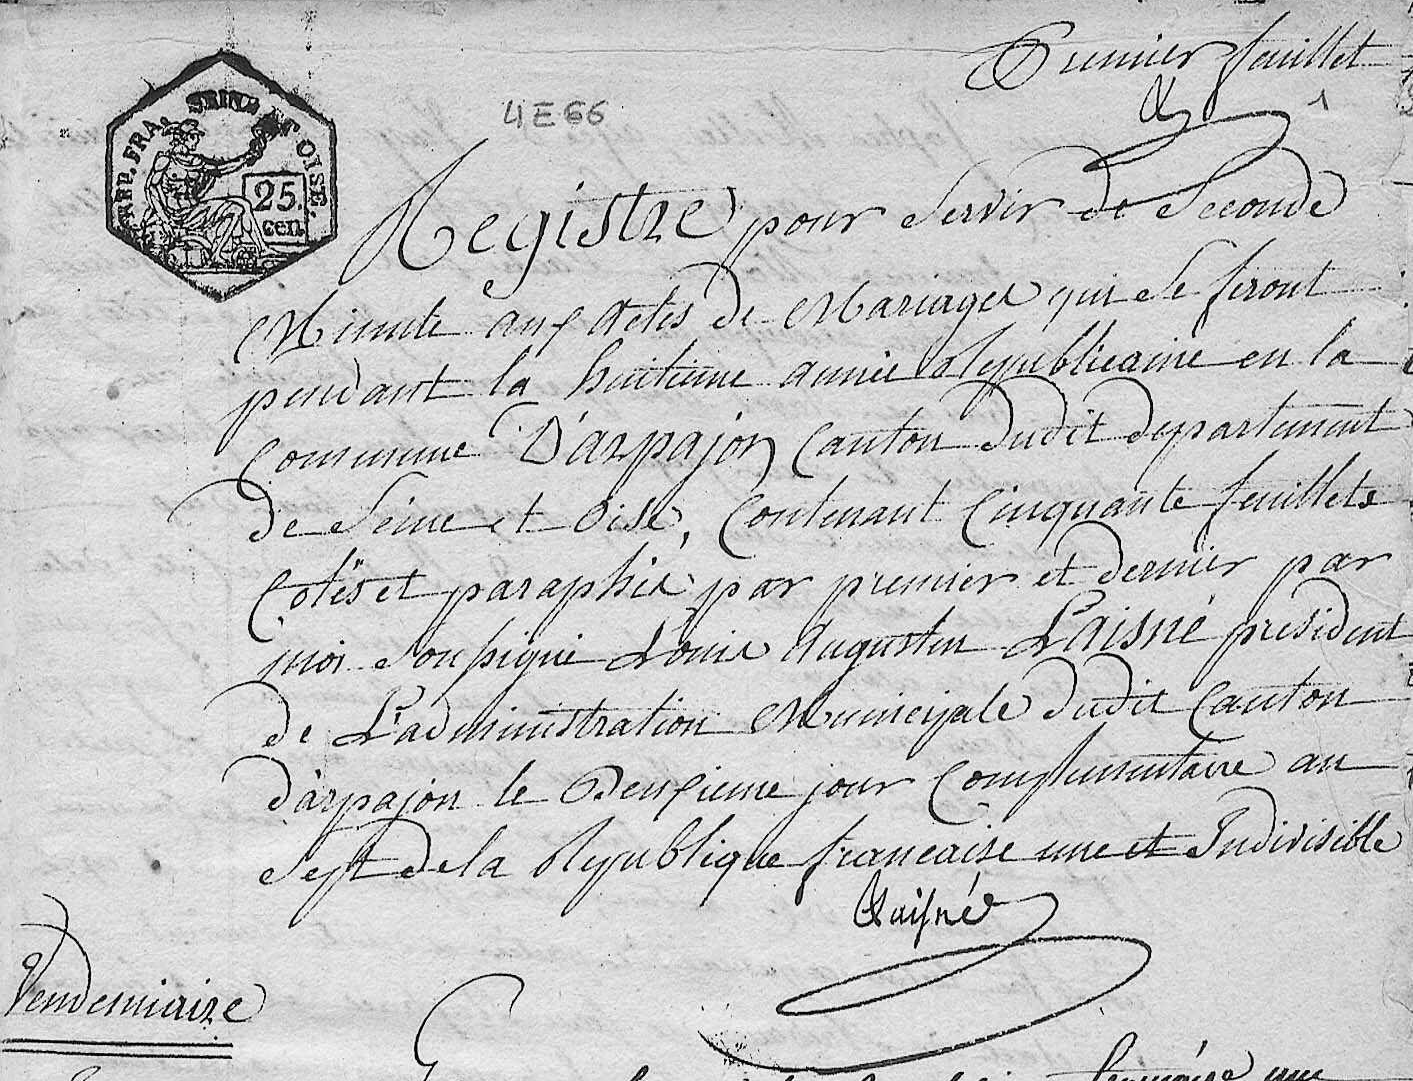 Premier feuillet
1
REP. FRA. SEINE ET OISE.
25.
cen.
4E66
Registre pour servir de seconde
Minute aux Actes de Mariages qui se feront
pendant la huitieme année Republicaine en la
commune D'arpajon Canton dudit departement
de Seine et Oise, Contenant Cinquante feuillets
Cotés et paraphés par premier et dernier par
moi soussigné Louis Augustin Laisné president
de L'administration Municipale dudit Canton
d'arpajon le Deuxieme jour Complementaire an
Sept de la Republique francaise une et Indivisible
Laisné
Vendemiaire